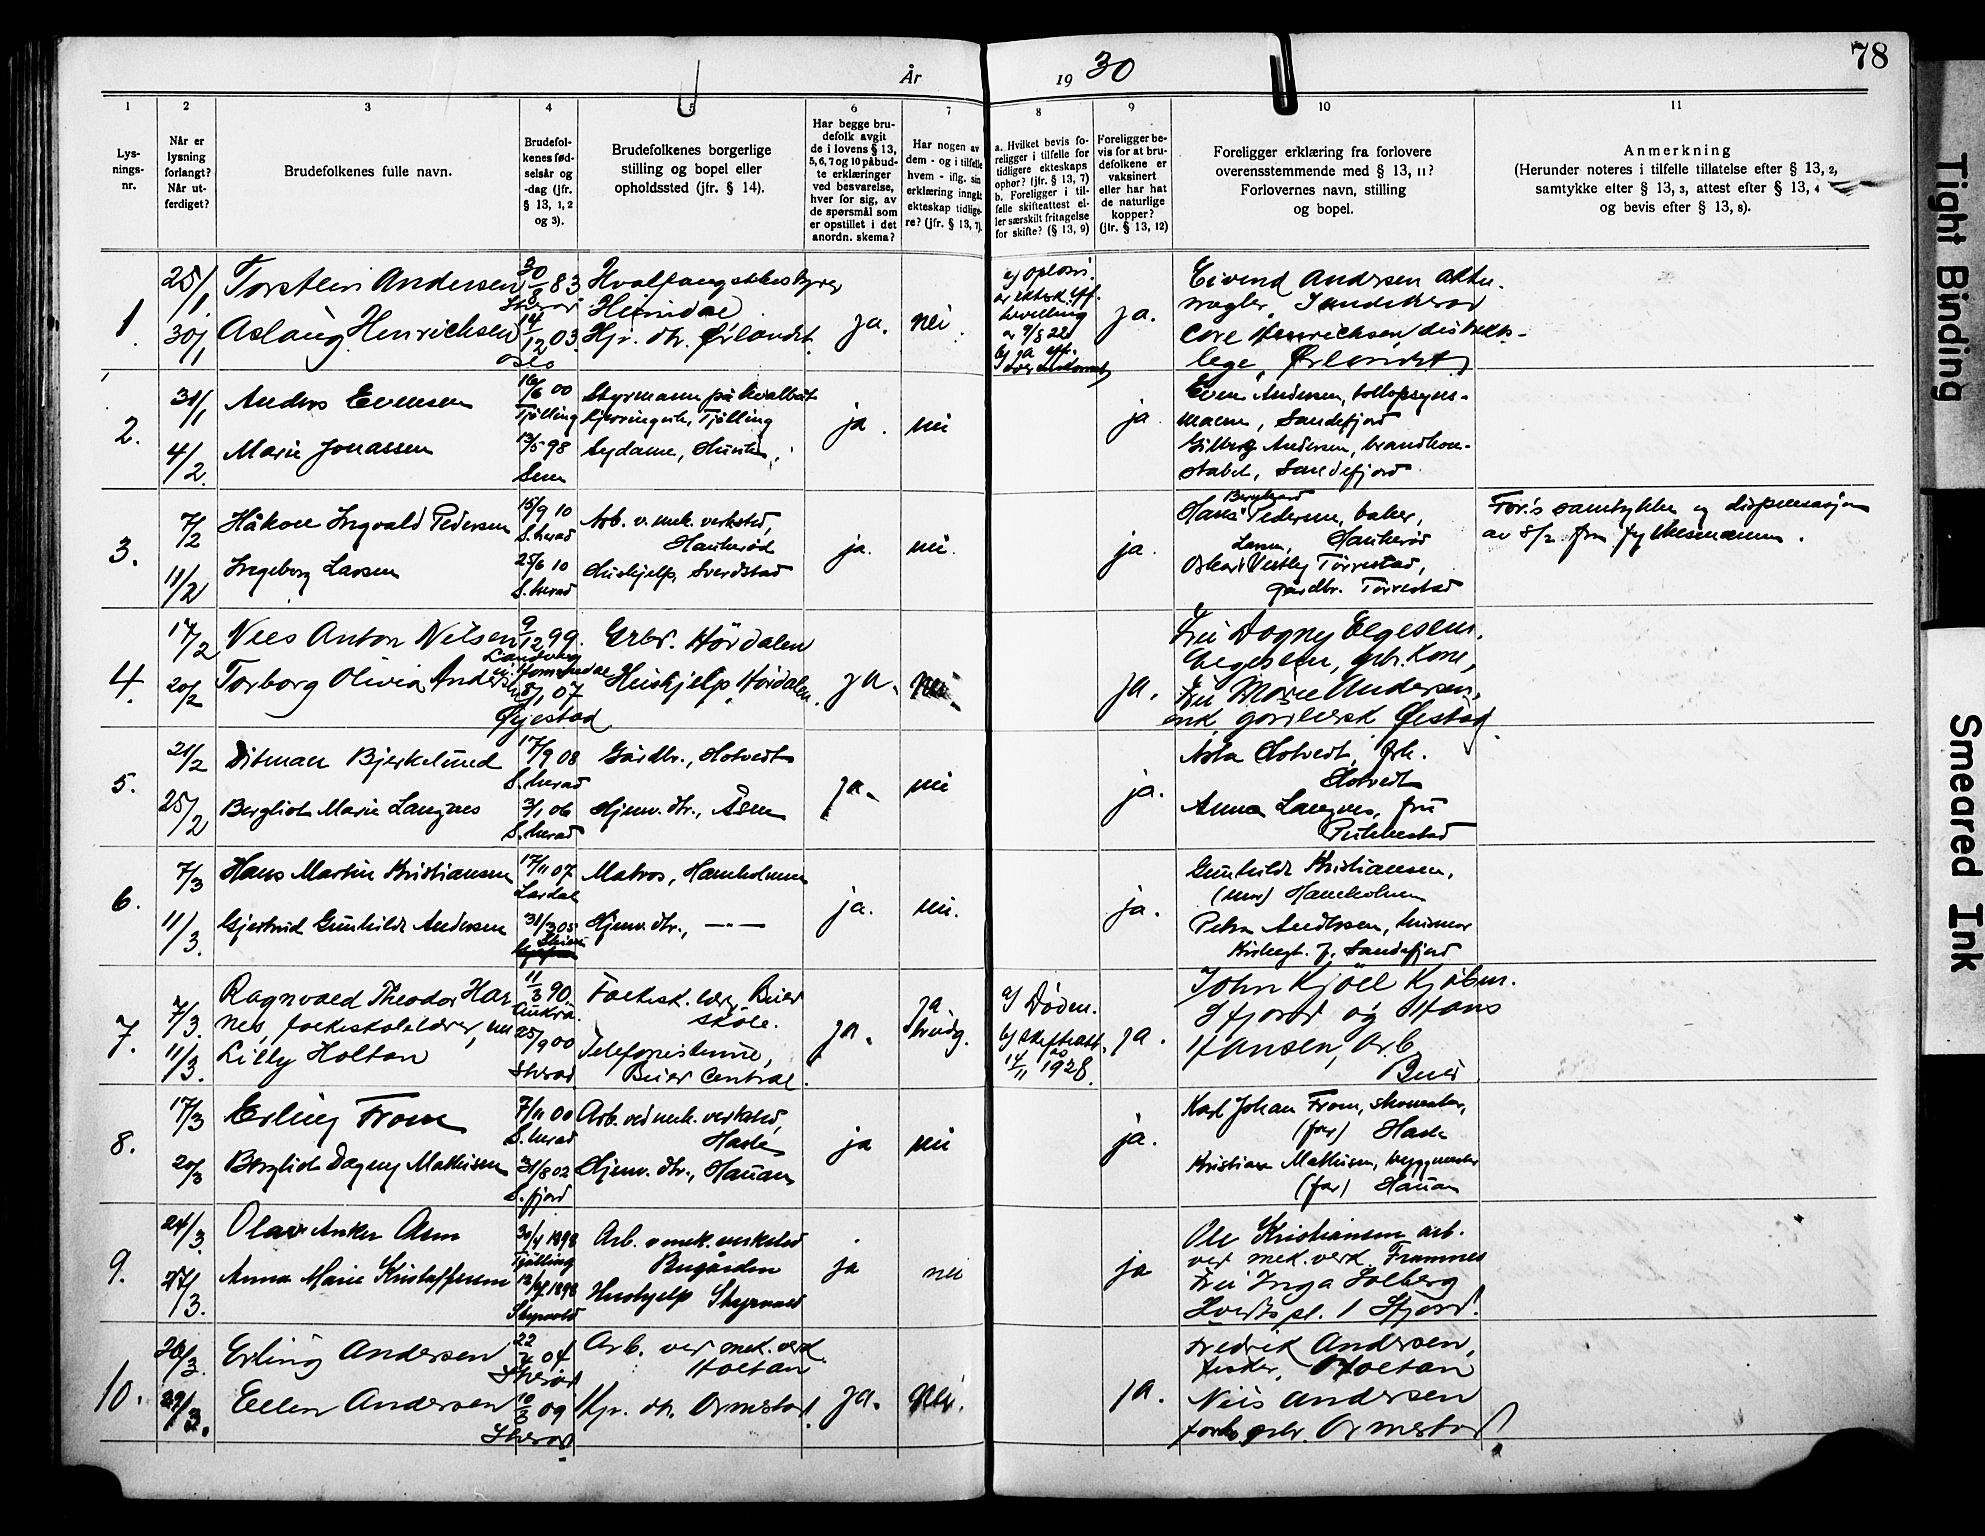 78
År 1930
1 2 3 4 5 6 7 8 9 10 11
Lysningsnr.
Når er lysning forlangt? Når utferdiget?
Brudefolkenes fulle navn.
Brudefolkenes fødselsår og -dag (jfr. § 13, 1, 2 og 3).
Brudefolkenes borgerlige stilling og bopel eller opholdssted (jfr. § 14).
Har begge brudefolk avgit de i lovens § 13, 5, 6, 7 og 10 påbudte erklæringer ved besvarelse, hver for sig, av de spørsmål som er opstillet i det anordn. skema?
Har nogen av dem - og i tilfelle hvem - iflg. sin erklæring inngått ekteskap tidligere? (jfr. § 13, 7).
a. Hvilket bevis foreligger i tilfelle for tidligere ekteskaps ophør? (jfr. § 13, 7)
b. Foreligger i tilfelle skifteattest eller særskilt fritagelse for skifte? (§ 13, 9)
Foreligger bevis for at brudefolkene er vaksinert eller har hat de naturlige kopper? (jfr. § 13, 12)
Foreligger erklæring fra forlovere overensstemmende med § 13, 11? Forlovernes navn, stilling og bopel.
Anmerkning
(Herunder noteres i tilfelle tillatelse efter § 13, 2, samtykke efter § 13, 3, attest efter § 13, 4 og bevis efter § 13, 8).
1. 25/1 Torstein Andersen 30/8 83 Hvalfangstbestyrer
Sherad Heimdal
30/1 Aslaug Henrichsen 14/12 03 Hjv. dtr. Ørlandet ja. nei.
Oslo
a) opløsn.
av ektesk. eft.
bevilling
b) ja eft.
ja.
Eivind Andersen
megler, Sandeherad
Core Henrichsen distrikts-
lege, Ørlandet
2. 31/1 Anders Evensen 16/6 00 Styrmann på hvalbåt
Tjølling Tjølling
4/2. Marie Jonassen 13/5 98 Sydame,
Sem
ja. nei ja
Even Andersen, tollopsyns-
mann, Sandefjord
Gilberg Andersen, brandkon-
stabel, Sandefjord
3. 7/2 Håkon Ingvald Pedersen 15/9 10 Arb. v. mek. verksted,
S.herad Haukerød
11/2 Ingeborg Larsen 25/6 10 Hushjelp,
S.herad
ja. nei. ja.
Hans Berghard Pedersen, baker,
Haukerød
Oskar Larsen, Vestby Tørrestad,
gårdbr. Tørrestad
Før.s samtykke og dispensasjon
av 8/2 fra fylkesmannen.
4. 17/2 Niels Anton Nilsen 9/12 99. Grbr. Hørdalen
20/2 Torborg Olivia Andersen 8/1 07 Hushjelp Hørdalen.
Øyestad
ja. nei. ja.
Fru Dagny Elgesem.
Elgesem, gbr. kone,
Fru Marie Andersen.
enk. Øiestad.
5. 21/2 Ditman Bjerkelund 17/9 08 Gårdbr., Hotvedt
S.herad
25/2 Bergliot Marie Langnes 3/1 06 Hjemv. dtr., Åsen
S.herad
ja. nei ja.
Asta Hotvedt, frk.
Hotvedt
Anna Langnes, fru
Pukkestad
6. 7/3 Hans Martin Kristiansen 17/11 07 Matros, Hamholmen
Lardal
11/3. Gjertrud Gunhilde Andersen 31/3 05 Hjemv. dtr., — " —
Skien
ja. nei. ja.
Gunhilde Kristiansen,
(mor) Hamholmen
Petra Andersen, husmor
Kirkegt. 7, Sandefjord
7. 7/3. Ragnvald Theodor Har- 11/3 90. Folkesk. lær. Buer
nes, folkeskolelærer, Aukra skole.
11/3. Lilly Holtan 25/9 00 Telefonistinne,
Sherad Buer Central.
ja. ja Brudg.
a) Døden.
b) Skifteatt.
14/11 1928.
ja.
John Kjöll Kjöbm.
Sfjord og Hans
Hansen, Arb.
Buer
8. 17/3 Erling From 7/11 00 Arb. ved mek. verksted,
S.herad Hasle
20/3 Bergliot Dagny Mathisen 31/8 02 Hjemv. dtr., Hauan
S.fjord
ja nei ja.
Karl Johan From, skomaker,
(far) Hasle
Kristian Mathisen, byggmester
(far) Hauan
9. 24/3. Olav Anker Åsen 30/4 1898 Arb. v mek. verksted
Tjølling Bugården
27/3. Anna Marie Kristoffersen 12/4 1898 Hushjelp
ja nei ja
Ole Kristiansen arb.
ved mek. verk. Framnes
Fru Inga Solberg
Hvedts pl. 1 Sfjord.
10. 26/3. Erling Andersen 22/4 04 Arb. ved mek. verk.
Sherad Holtan
29/3. Ellen Andersen 10/3 09 Hjv. dtr. Ormestad
Sherad.
ja. nei. ja.
Fredrik Andersen,
fisker, Holtan
Nils Andersen
forh. gbr. Ormestad.
Tight Binding
Smeared Ink